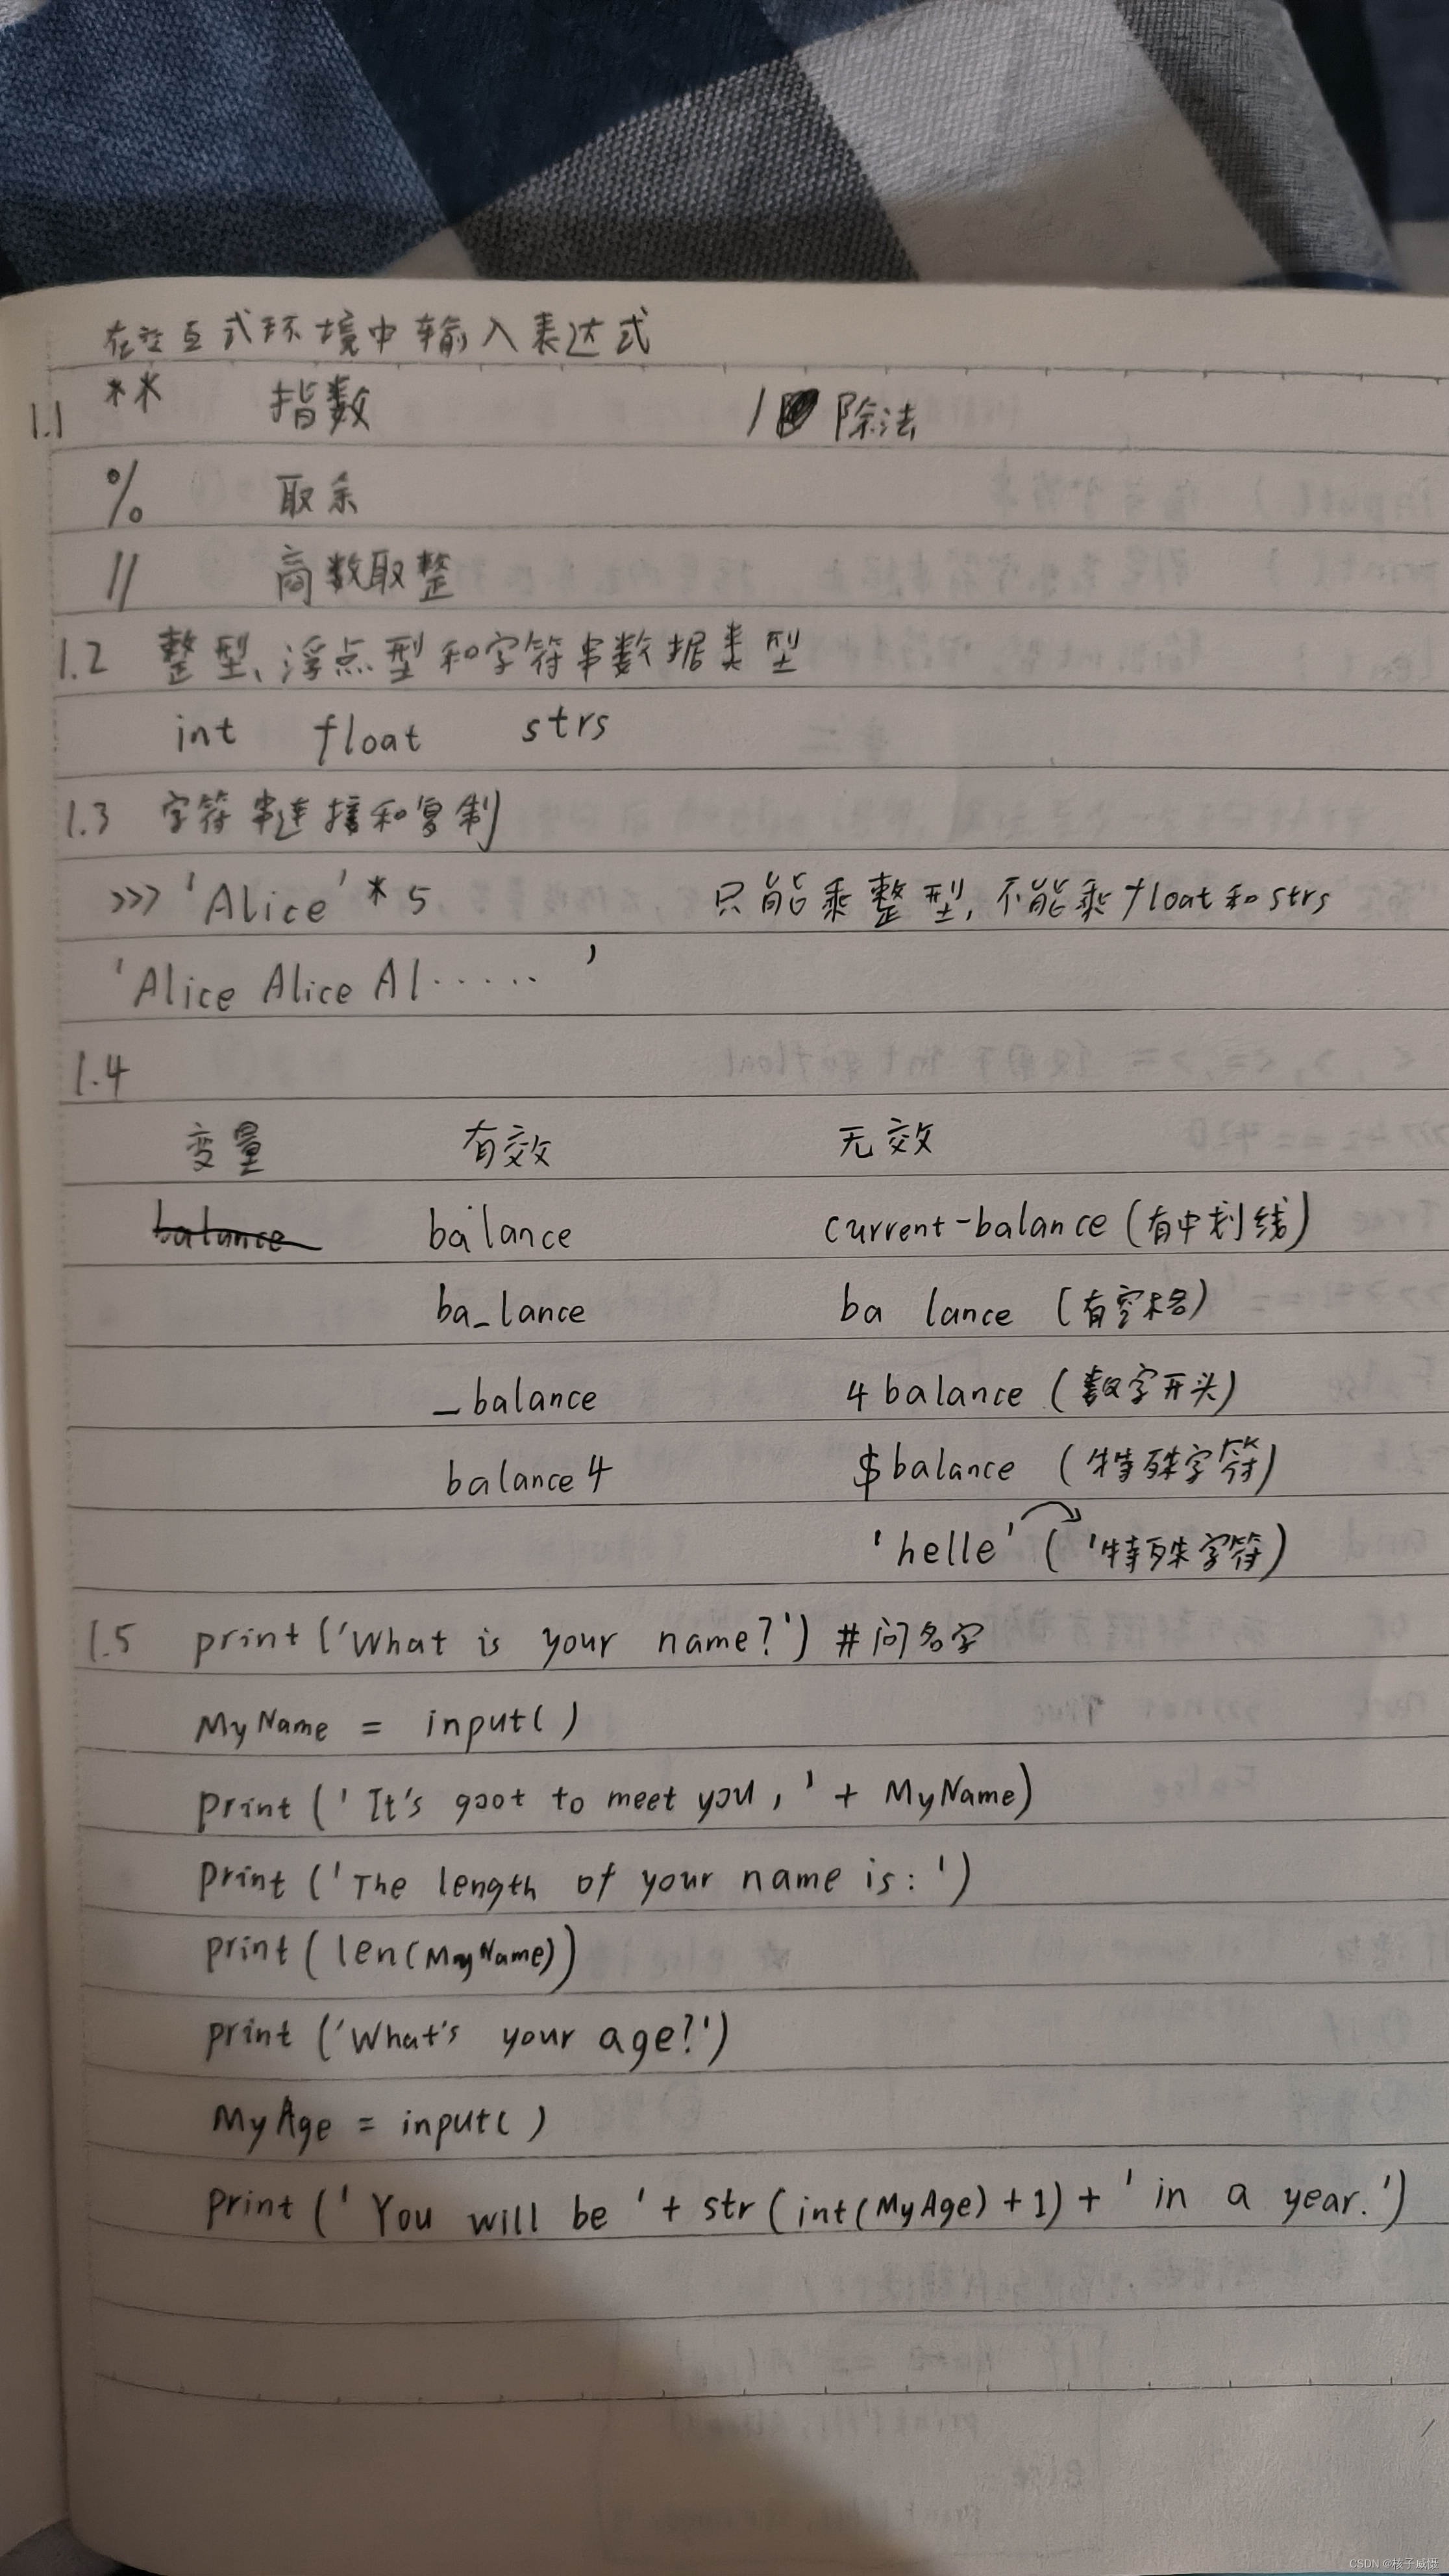 在交互式环境中输入表达式
1.1 ** 指数 / 除法
% 取余
// 商数取整
1.2 整型、浮点型和字符串数据类型
int float strs
1.3 字符串连接和复制
>>> 'Alice' * 5 只能乘整型, 不能乘float和strs
'Alice Alice Al······ '
1.4
变量 有效 无效
balance balance current-balance (有中划线)
ba_lance ba lance (有空格)
_balance 4balance (数字开头)
balance4 $balance (特殊字符)
'helle' ( '特殊字符)
1.5 print('What is your name?') #问名字
MyName = input()
print('It's goot to meet you, ' + MyName)
print('The length of your name is: ')
print(len(MyName))
print('What's your age?')
MyAge = input()
print('You will be ' + str(int(MyAge)+1) + ' in a year.')
CSDN @核子威慑